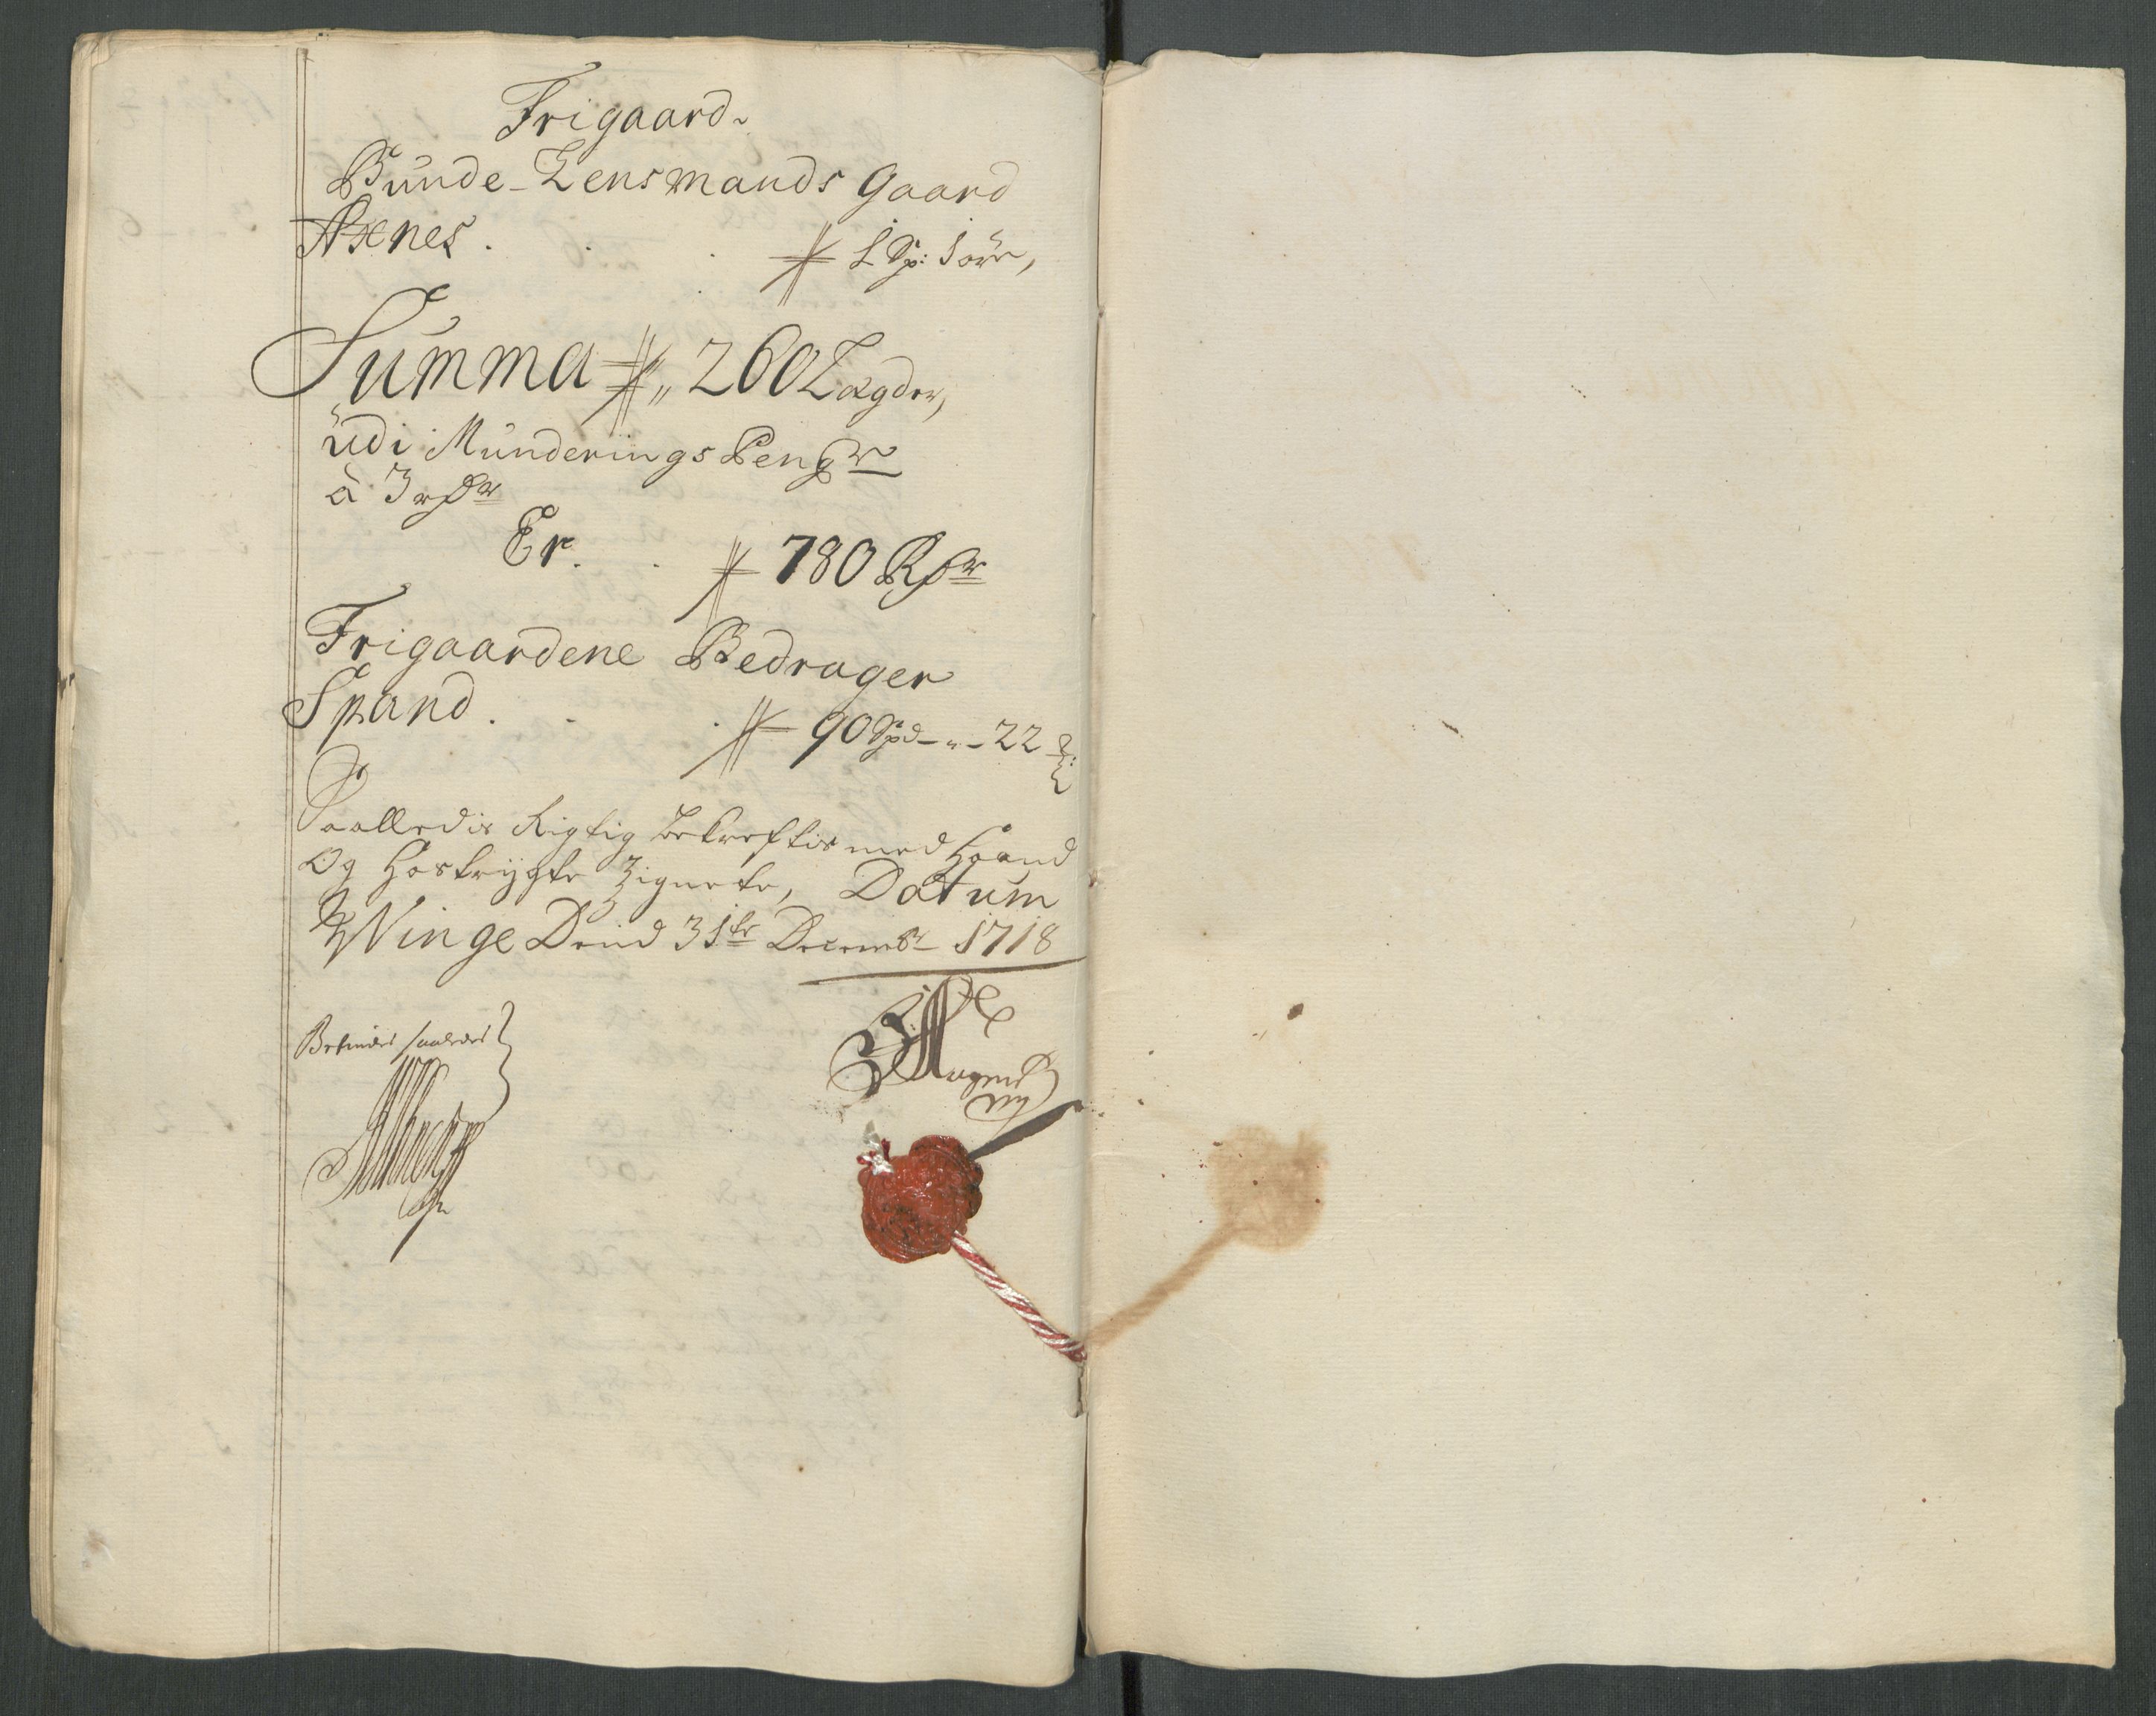 Frigaard
Bünde-Lensmands Gaard
Axnes . . . 1 Sp: 1 øre,
Summa 260 Lægder,
üdi Münderings Penge
à 3 rdr
Er. . 780 Rdr
Frigaardene Bedrager
Spand . . . 90 Spd - „ - 22
Saalledis Rigtig bekreftis med Haand
Og Hostrygte Zignete, Datum
Winge Dend 31te Decembr 1718
Befindes saaledes